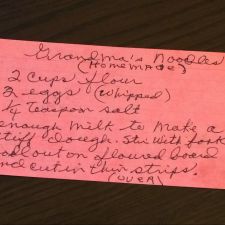 Grandma's Noodles
(HOMEMADE)
2 cups flour
2 eggs (whipped)
1/4 teaspoon salt
enough milk to make a
stiff dough. Stir with fork
roll out on floured board
and cut in thin strips.
(OVER)